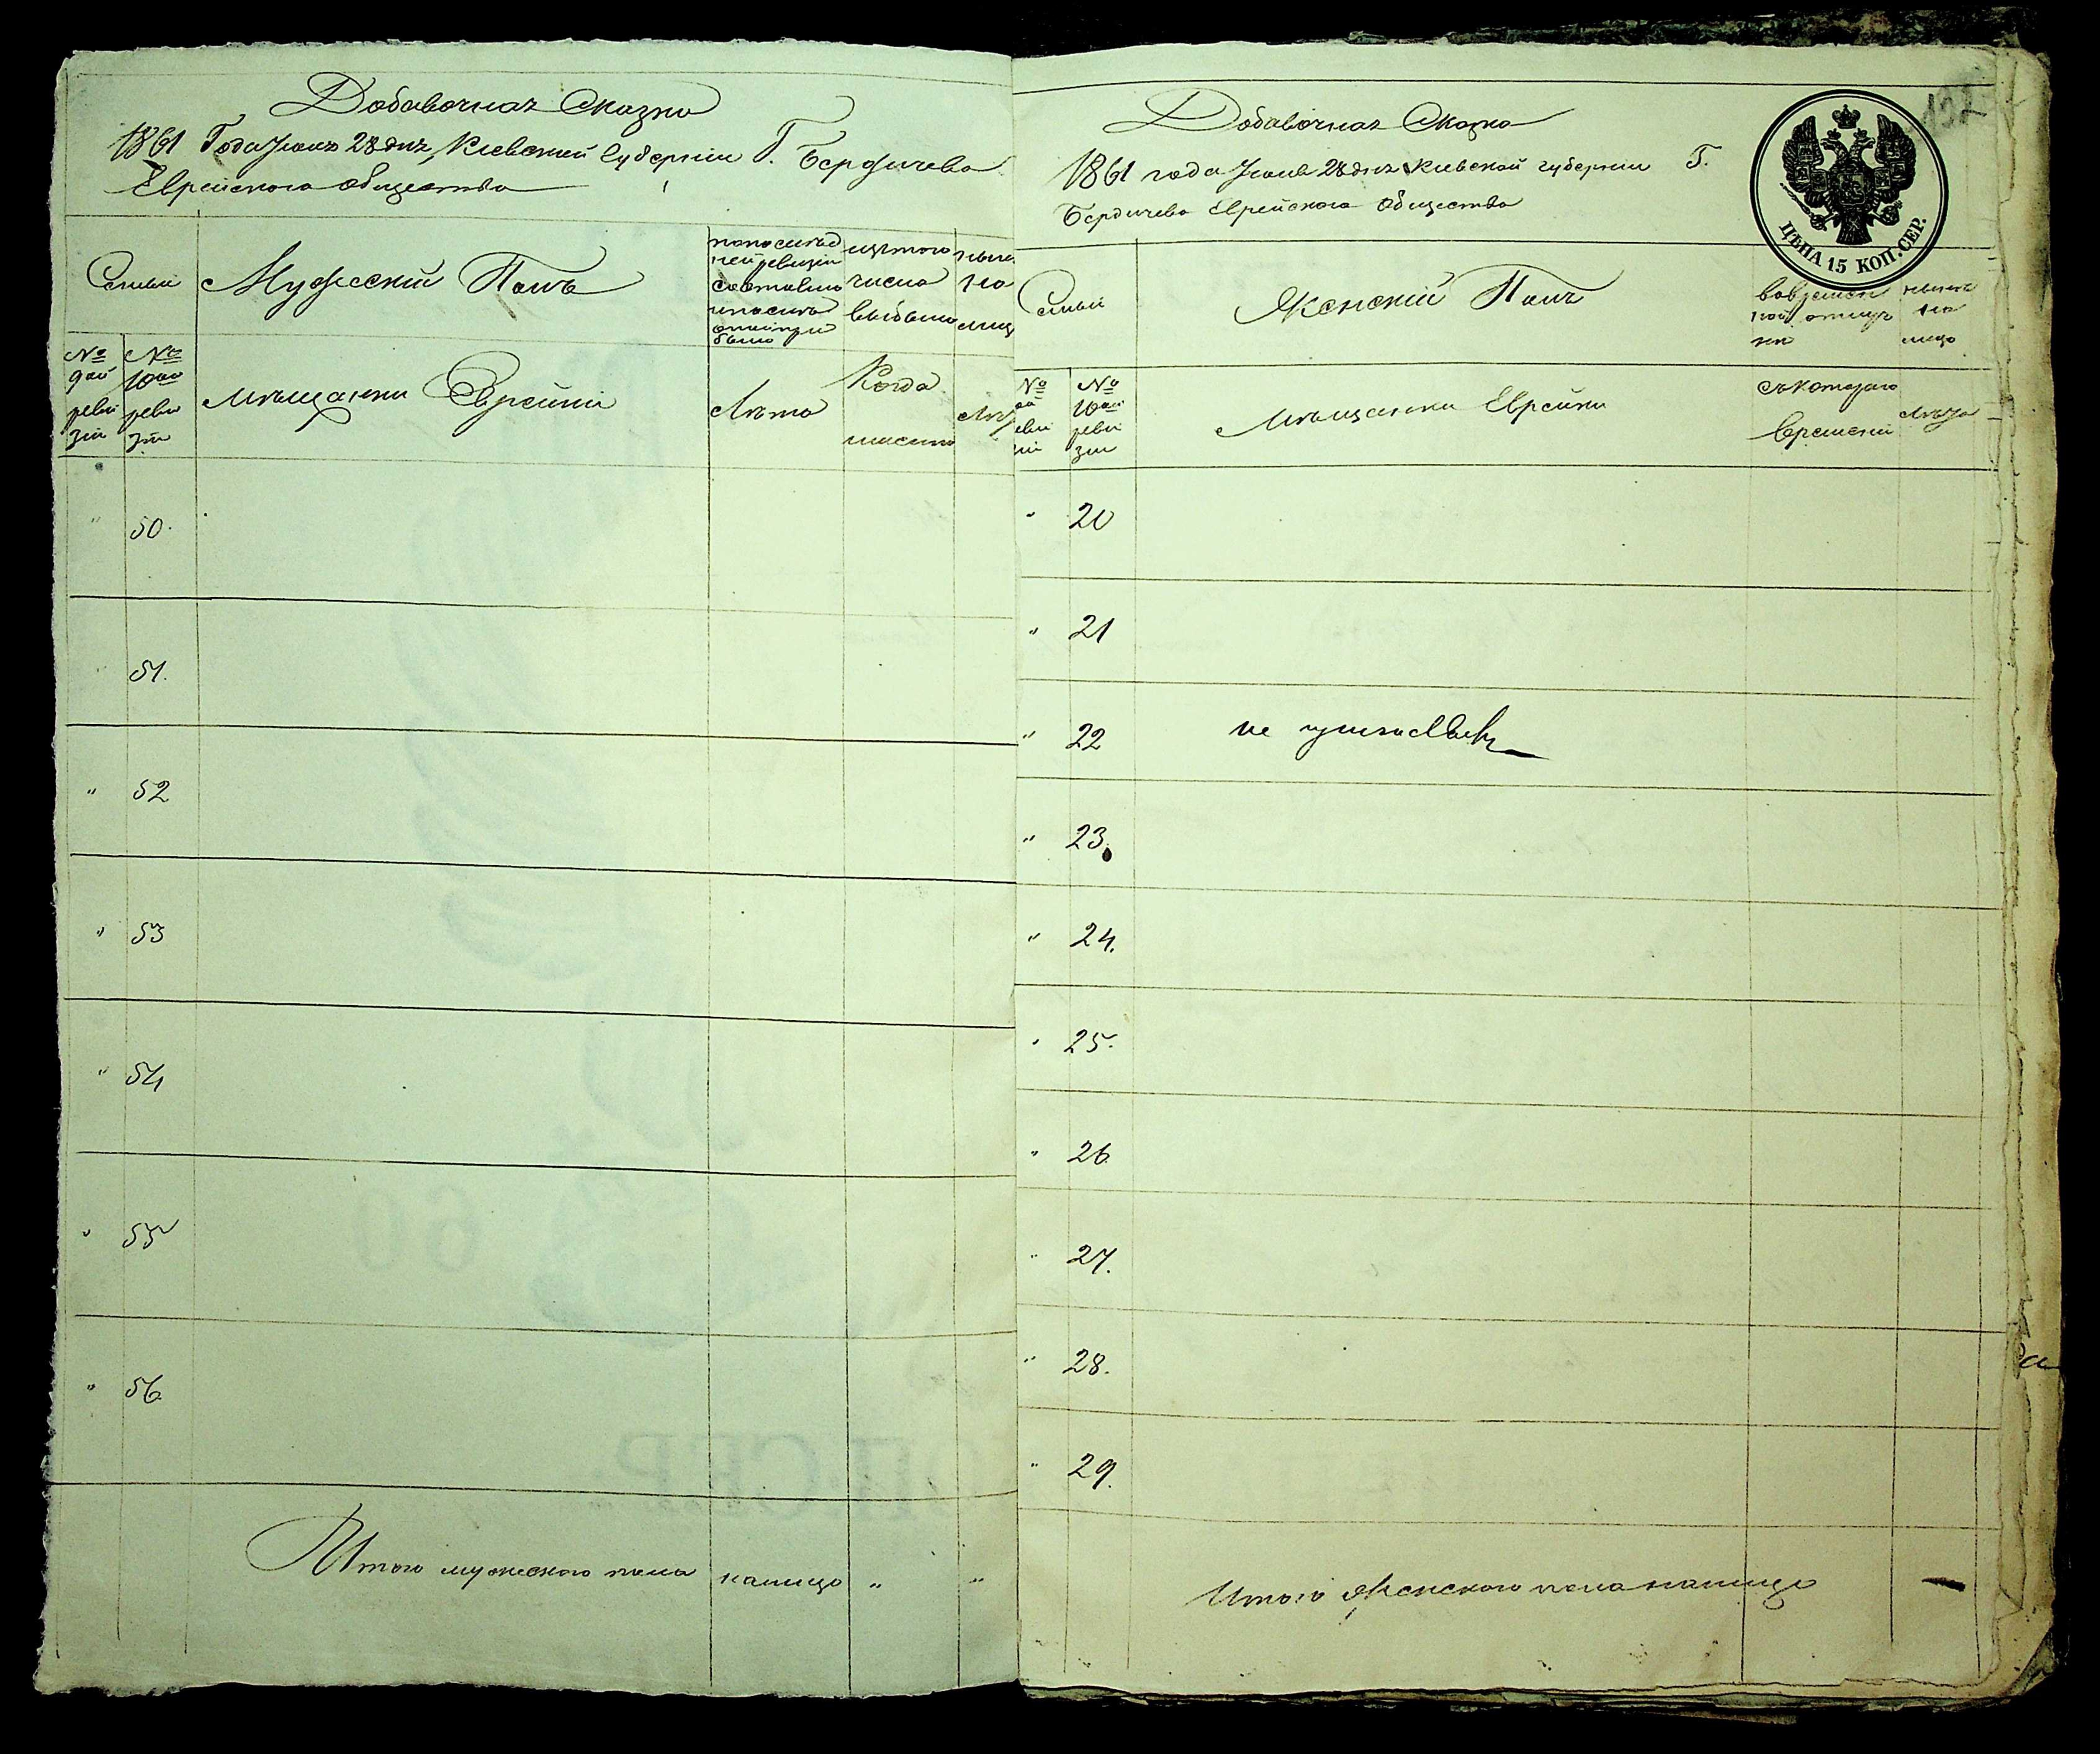 Добавочная Сказка
1861 Года Июня 28 дня, Киевской Губернии Г. Бердичева
Еврейского общества
Семьи
Мужескій Полъ
по послѣд
ней ревизіи
состояло
и послѣ
оной при
было
изъ того
числа
выбыло
ныне
на
лицо
№
9ой
реви
зіи
№
10ой
реви
зіи
мѣщанки Евреики
Лѣта
Когда
именно
Лѣт
" 50.
" 51.
" 52
" 53
" 54
" 55
" 56.
Итого мужеского пола налицо " "
Добавочная Сказка
1861 года Июня 28 дня Киевской губернии Г.
Бердичева Еврейского Общества
132
ЦѢНА 15 КОП. СЕР.
Семьи
Женскій Полъ
во времен
ной отлуч
ке
нынѣ
на
лицо
№
ой
еви
іи
№
10ой
реви
зіи
мѣщанки Евреики
съ котораго
времени
Лѣта
" 20
" 21
" 22
не
" 23.
" 24.
" 25.
" 26
" 27.
" 28.
" 29.
Итого Женского пола налицо —